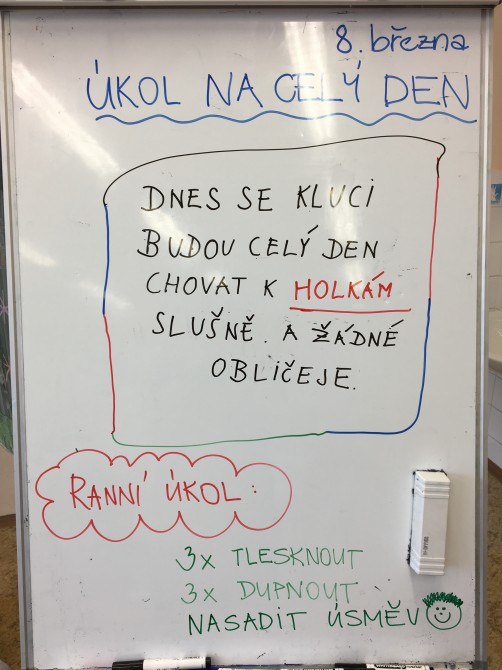 8. března
ÚKOL NA CELÝ DEN
DNES SE KLUCI
BUDOU CELÝ DEN
CHOVAT K HOLKÁM
SLUŠNĚ. A ŽÁDNÉ
OBLIČEJE.
RANNÍ ÚKOL:
3x TLESKNOUT
3x DUPNOUT
NASADIT ÚSMĚV